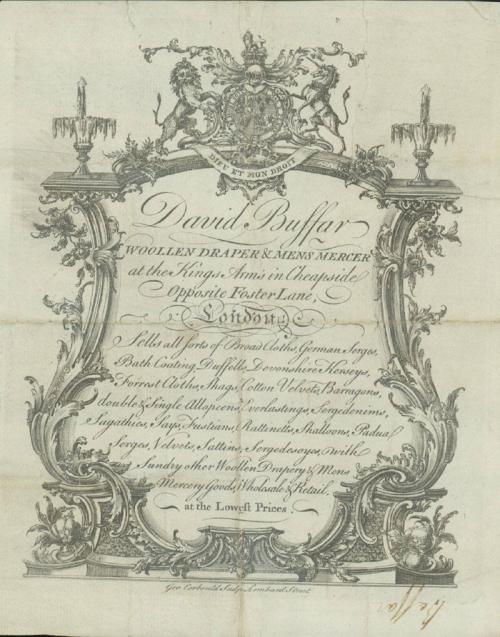 DIEU ET MON DROIT
David Buffar
WOOLLEN DRAPER & MENS MERCER
at the Kings Arms in Cheapside
Opposite Foster Lane,
London
Sells all sorts of Broad Cloths, German Serges,
Bath Coating, Duffells, Devonshire Kerseys,
Forrest Cloths, Shags, Cotton Velvets, Barragons,
double & Single Allapeens, Everlastings, Sergedenims,
Sagathies, Says, Fustians, Rattinetts, Shalloons, Padua
Serges, Velvets, Sattins, Sergedesoyes, with
Sundry other Woollen Drapery & Mens
Mercery Goods, Wholesale & Retail,
at the Lowest Prices.
Geo. Corbould Sculp. Lombard Street
Beffar